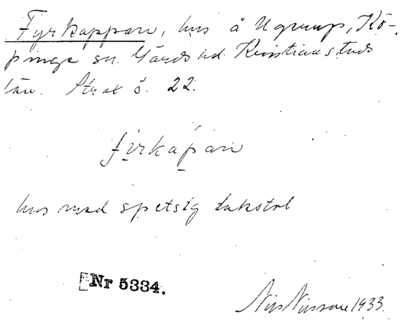 Fyrkappan, hus å Ugerup, Kö-
pinge sn. Gärds hd. Kristianstads
län. Strax ö. 22.
fyrkápan
hus med spetsig takstol
Nr 5334.
Nils Nilsson 1933.